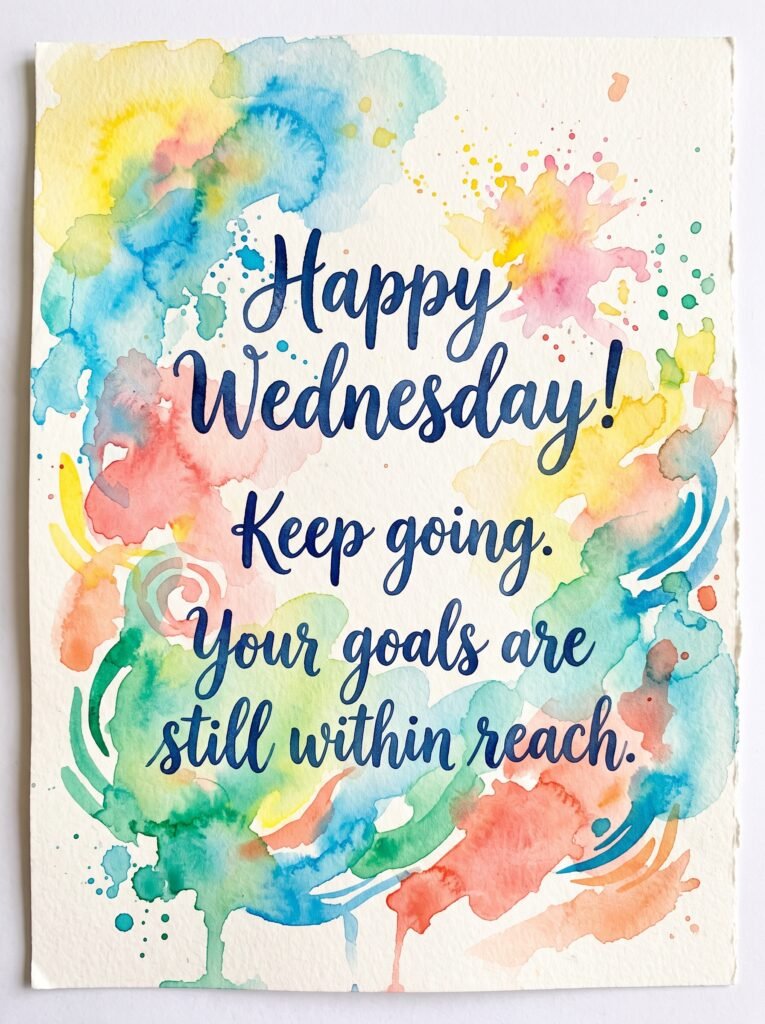 Happy
Wednesday!
Keep going.
Your goals are
still within reach.